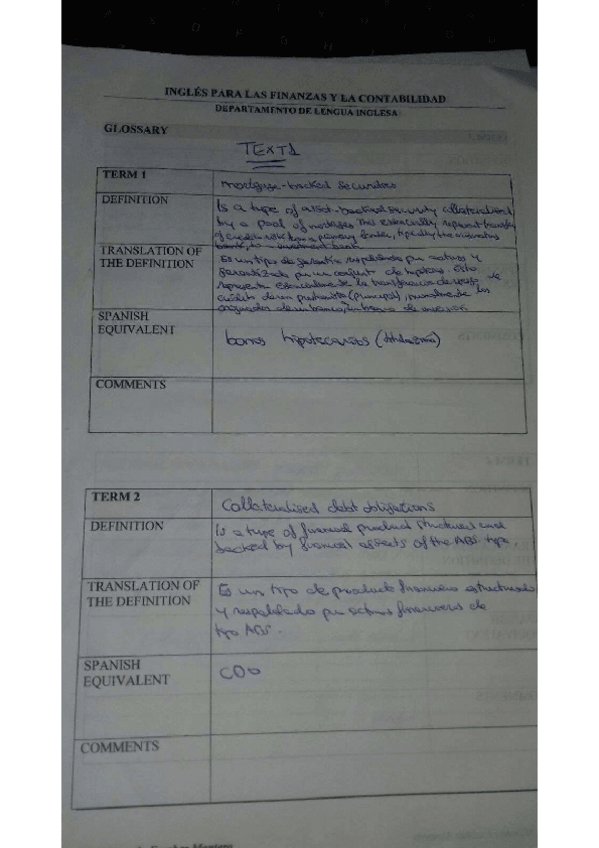 INGLÉS PARA LAS FINANZAS Y LA CONTABILIDAD
DEPARTAMENTO DE LENGUA INGLESA
GLOSSARY
TEXT 1
TERM 1
mortgage-backed securities
DEFINITION
Is a type of asset-backed security collateralised
by a pool of mortgages. This essentially represent transfer
of credit risk from a primary lender, typically the originators
to investment bank
TRANSLATION OF
THE DEFINITION
Es un tipo de garantía respaldada por activos y
garantizada por un conjunto de hipotecas. Esto
representa esencialmente la transferencia de riesgo de
crédito de un prestamista (principal), normalmente los
de un banco, de inversión
SPANISH
EQUIVALENT
bonos hipotecarios
COMMENTS
TERM 2
Collateralised debt obligations
DEFINITION
Is a type of financial product structured and
backed by financial assets of the ABS type.
TRANSLATION OF
THE DEFINITION
Es un tipo de producto financiero estructurado
y respaldado por activos financieros de
tipo ABS.
SPANISH
EQUIVALENT
CDO
COMMENTS